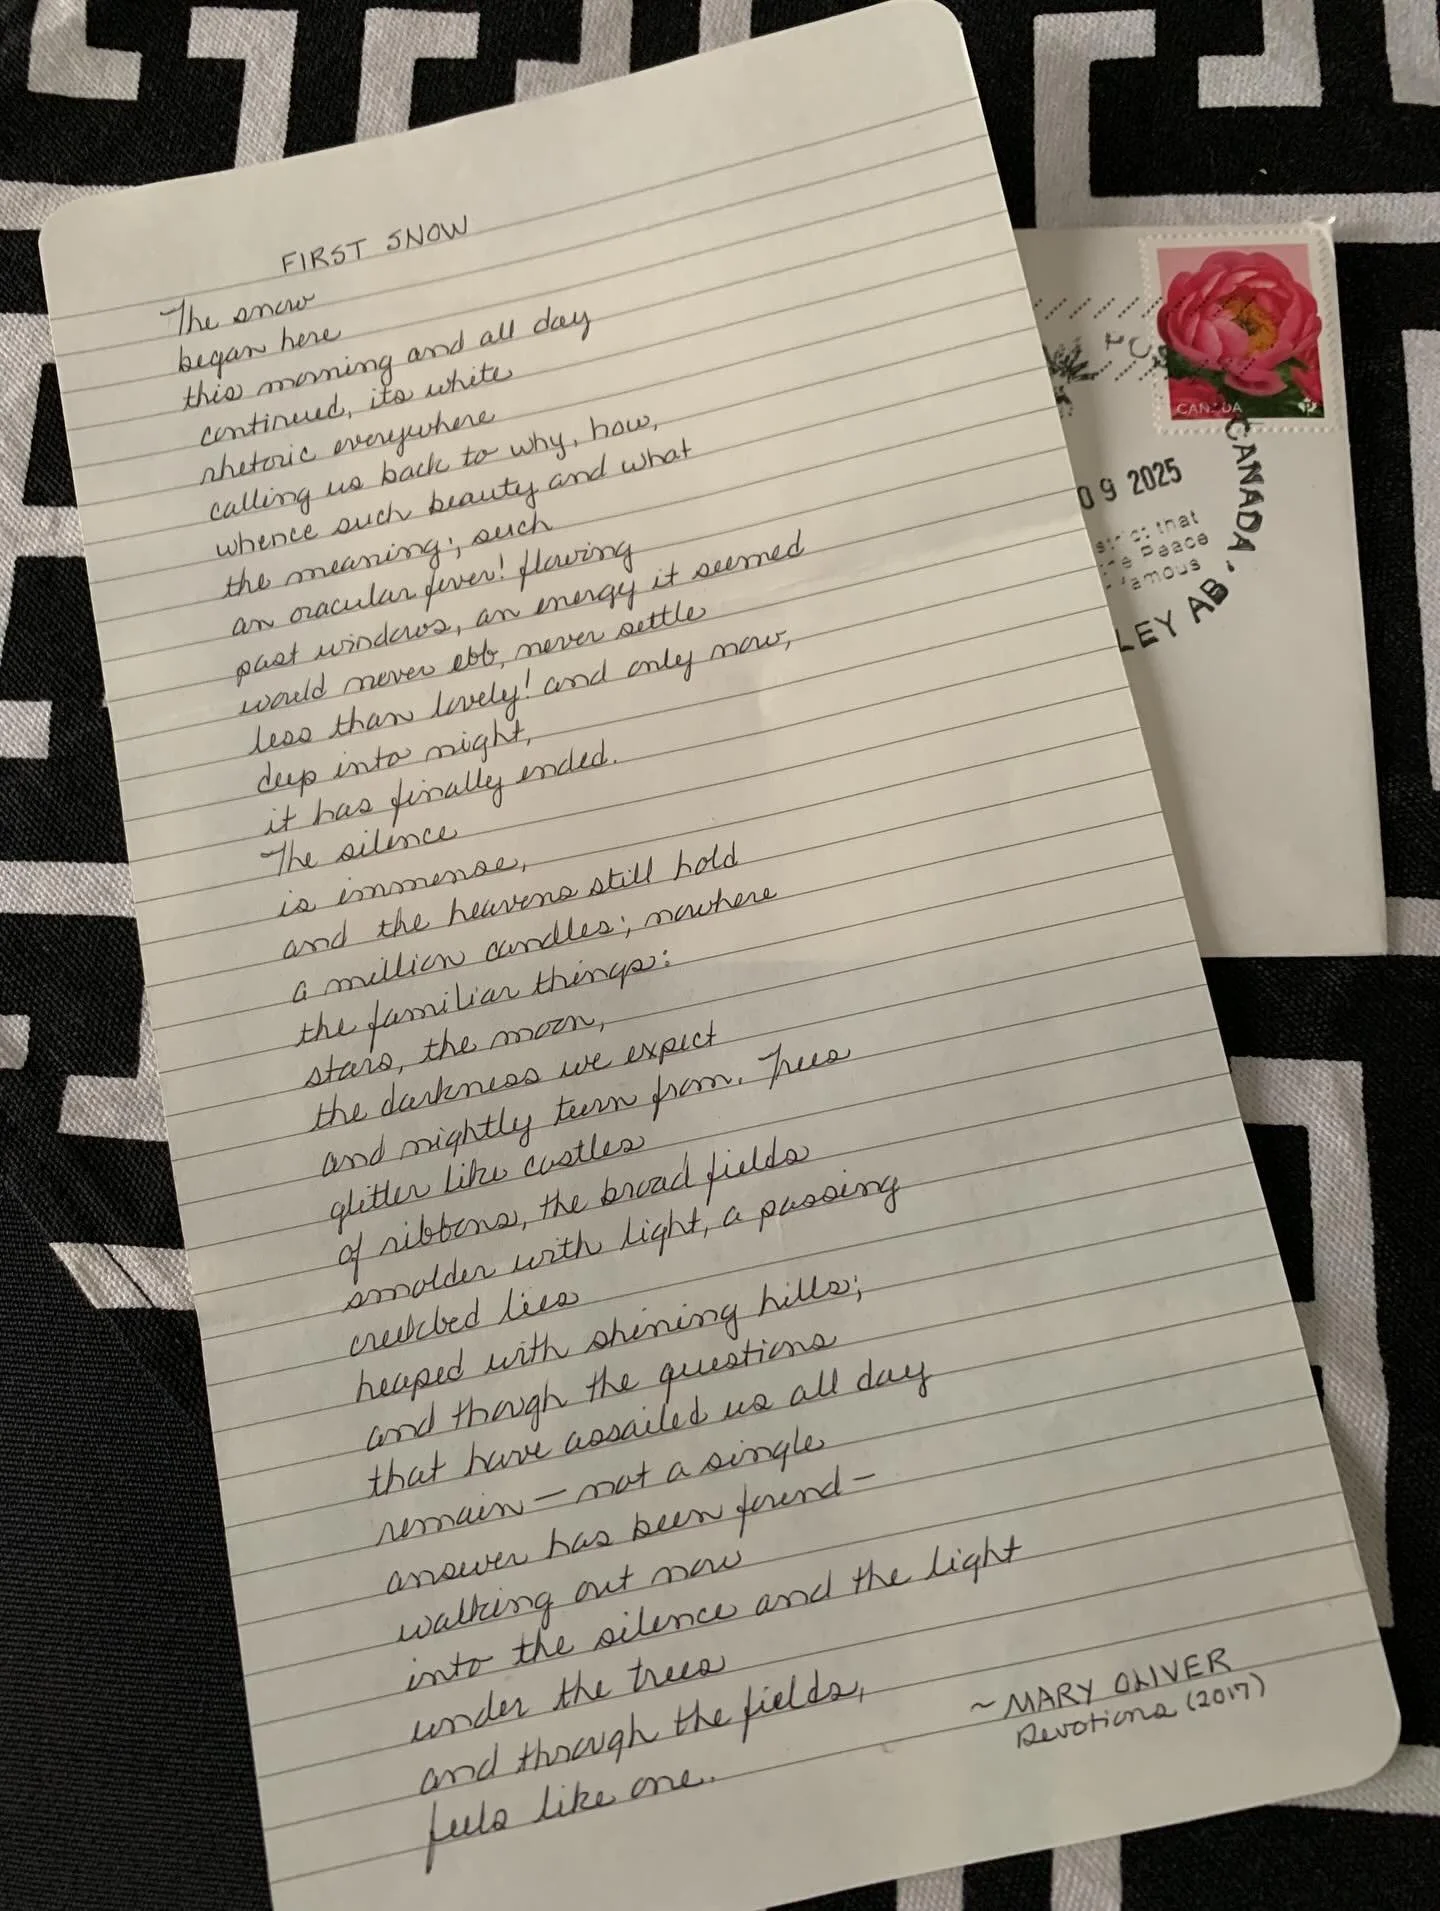 FIRST SNOW
The snow
began here
this morning and all day
continued, its white
rhetoric everywhere
calling us back to why, how,
whence such beauty and what
the meaning; such
an oracular fever! flowing
past windows, an energy it seemed
would never ebb, never settle
less than lovely! and only now,
deep into night,
it has finally ended.
The silence
is immense,
and the heavens still hold
a million candles; nowhere
the familiar things:
stars, the moon,
the darkness we expect
and nightly turn from. Trees
glitter like castles
of ribbons, the broad fields
smolder with light, a passing
creekbed lies
heaped with shining hills;
and though the questions
that have assailed us all day
remain — not a single
answer has been found —
walking out now
into the silence and the light
under the trees
and through the fields,
feels like one.
~ MARY OLIVER
Devotions (2017)
CANADA
P
09 2025
that
Peace
famous
CANADA
LEY AB